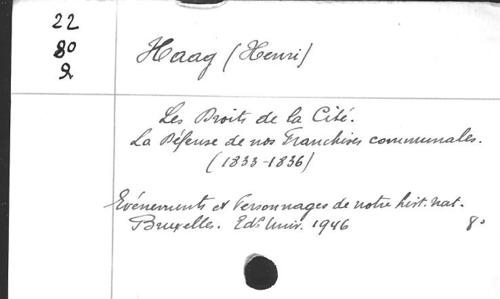 22
80
2
Haag (Henri)
Les Droits de la Cité.
La Défense de nos Franchises communales.
(1833-1836)
Evénements et Personnages de notre hist. nat.
Bruxelles. Edˢ Univ. 1946 8°